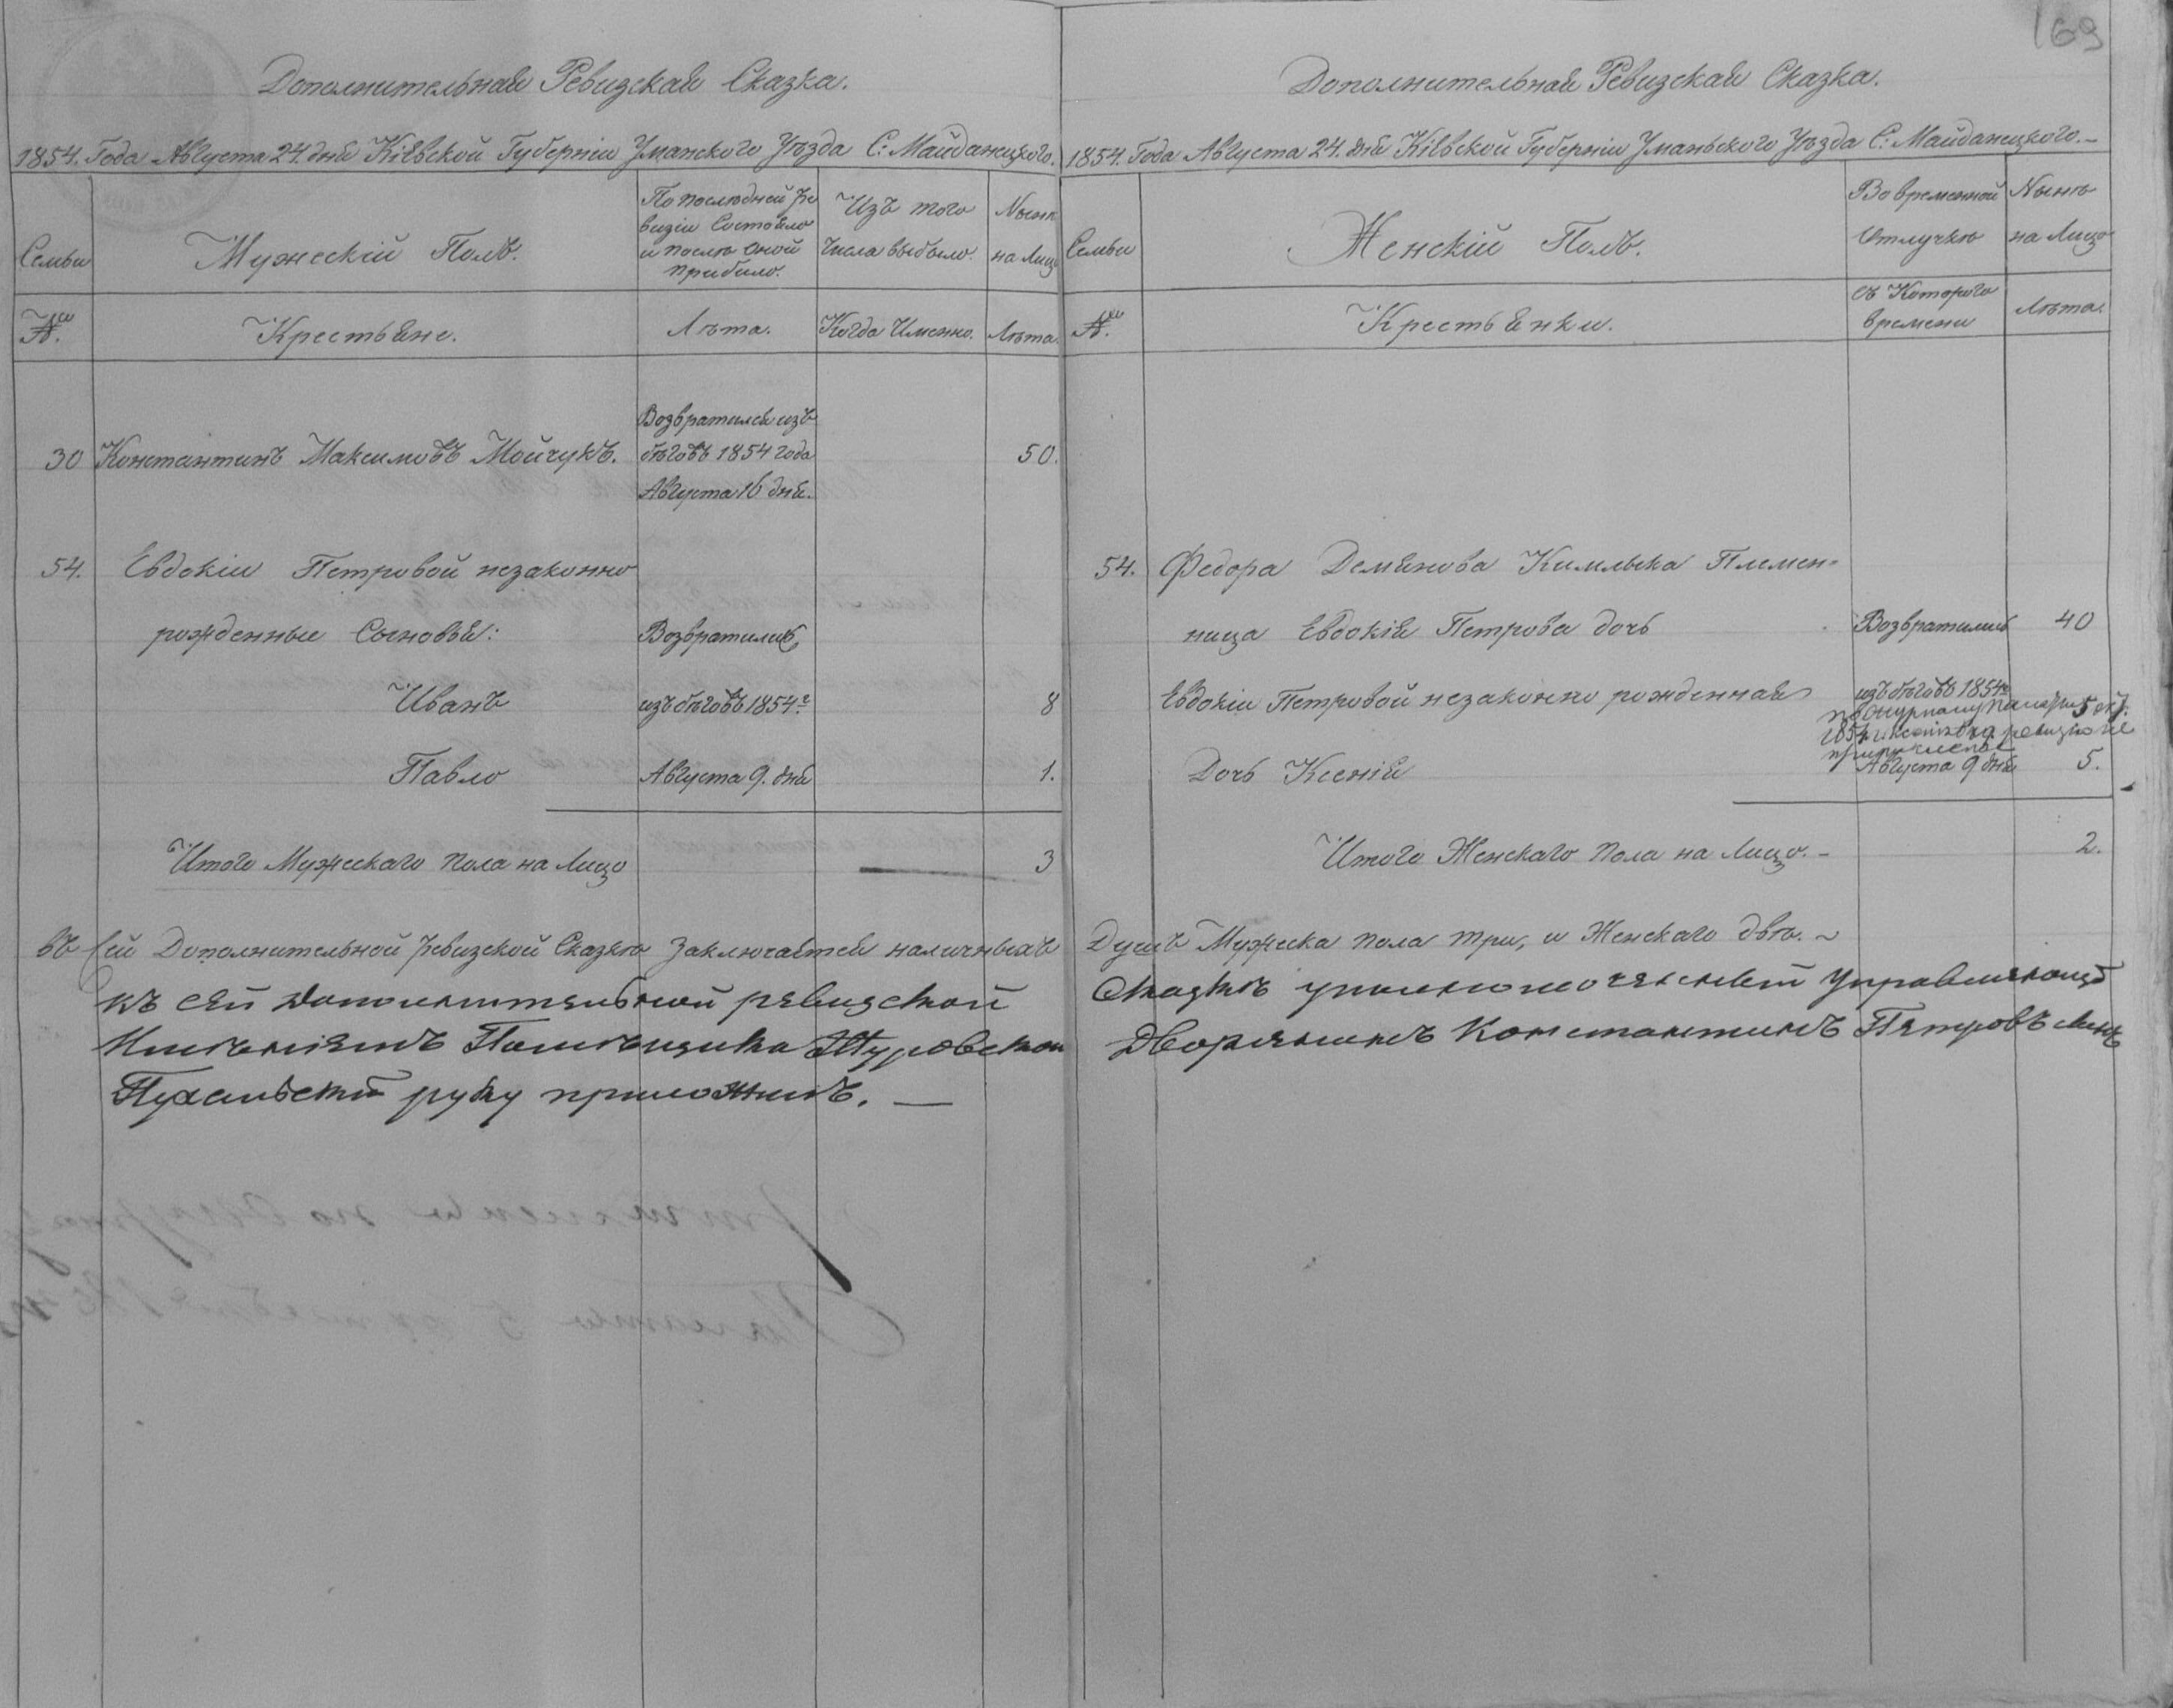 169
Дополнительная Ревизская Сказка.
1854. Года Августа 24. дня Кіевской Губерніи Уманского Уѣзда С: Майданецкого.
Семьи
Мужескій Полъ.
По послѣдней ре
визіи состояло
и послѣ оной
прибыло.
Изъ того
числа выбыло.
Нынѣ
на Лицо
№
Крестьяне.
Лѣта.
Когда Именно.
Лѣта.
30 Константинъ Максимовъ Мойчукъ.
Возвратился изъ
бѣговъ 1854 года
Августа 16 дня.
50.
54. Евдокіи Петровой незаконно
рожденные Сыновья: Возвратились
Иванъ изъ бѣговъ 1854 г. 8
Павло Августа 9. дня 1.
Итого Мужескаго пола на Лицо 3
Въ сей Дополнительной ревизской Сказкѣ Заключается наличныхъ
къ сей дополнительной ревизской
Имѣніемъ Помѣщика
руку приложилъ. —
Дополнительная Ревизская Сказка.
1854. Года Августа 24. дня Кіевской Губерніи Уманьского Уѣзда С: Майданецкого. –
Семьи
Женскій Полъ.
Во временной
Отлучкѣ
Нынѣ
на Лицо
№
Крестьянки.
Съ Которого
времени
Лѣта.
54. Федора Демянова Кимлыка Племен-
ница Евдокія Петрова дочь Возвратились 40
Евдокіи Петровой незаконно рожденная изъ бѣговъ 1854
Дочь Ксенія Августа 9 дня 5.
Итого Женскаго пола на Лицо. – 2.
Душъ Мужеска пола три, и Женскаго двѣ. ~
Сказкѣ уполномоченный Управляющ
Дворянинъ Константинъ Петровъ сынъ